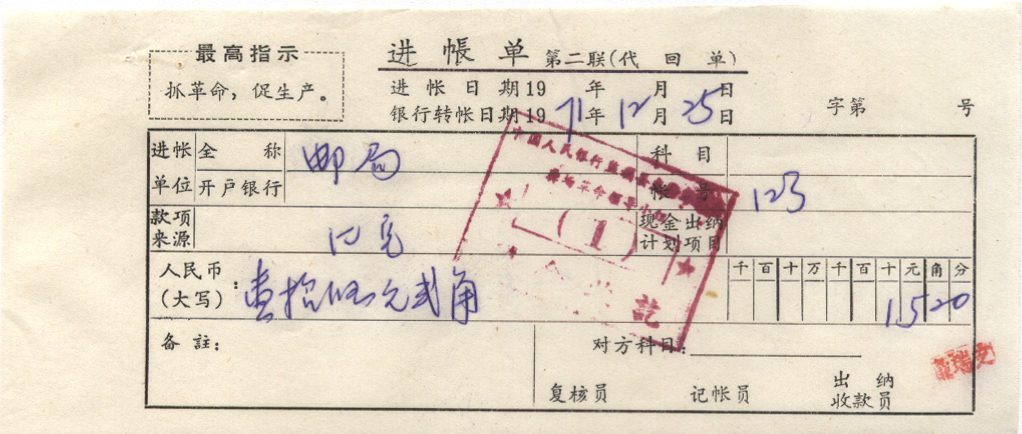 最高指示
抓革命，促生产。
进帐单 第二联(代回单)
进帐日期19 年 月 日
银行转帐日期1971年12月25日
字第 号
进帐单位 全称 邮局 科目
开户银行 帐号 123
款项来源 现金出纳计划项目
人民币(大写)：壹拾伍元贰角
千百十万千百十元角分
1520
备註： 对方科目：
复核员 记帐员 出纳收款员
中国人民银行
革命领导小组
(1)